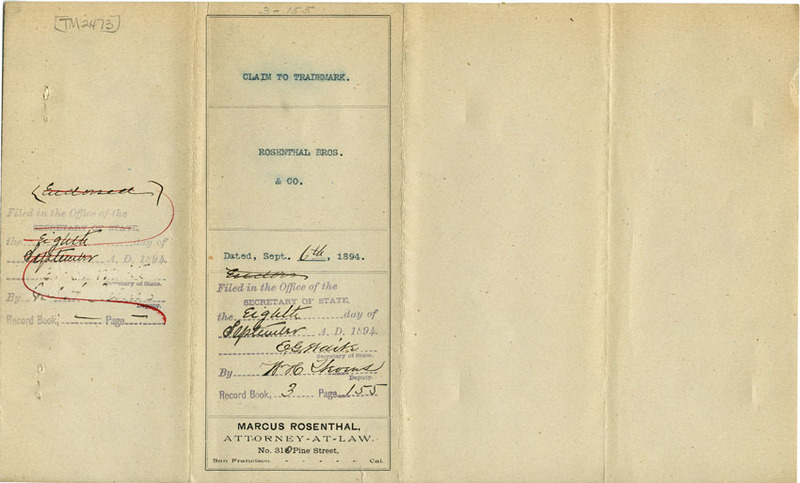 [TM2473]
(Endorsed)
Filed in the Office of the
SECRETARY OF STATE
the Eighth day of
September A. D. 1894.
Secretary of State.
By
Deputy.
Record Book, — Page —
3-155
CLAIM TO TRADEMARK.
ROSENTHAL BROS.
& CO.
Dated, Sept. 6th, 1894.
Filed in the Office of the
SECRETARY OF STATE,
the Eighth day of
September A. D. 1894
E. G. Waite
Secretary of State.
By W H
Deputy.
Record Book, 3 Page 155
MARCUS ROSENTHAL,
ATTORNEY-AT-LAW.
No. 310 Pine Street,
San Francisco, - - - - - Cal.